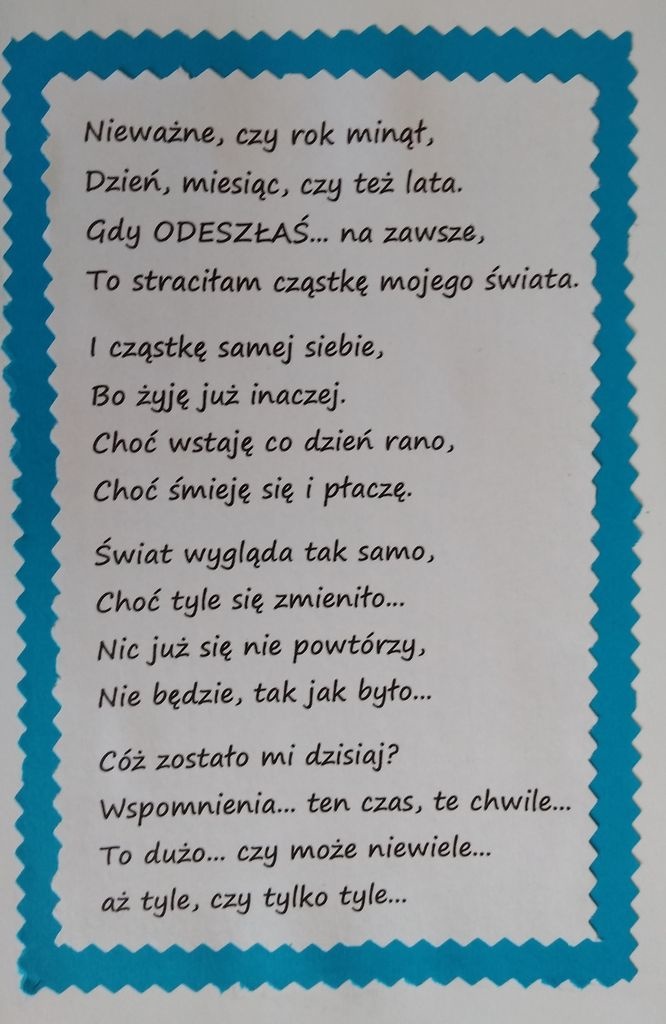 Nieważne, czy rok minął,
Dzień, miesiąc, czy też lata.
Gdy ODESZŁAŚ... na zawsze,
To straciłam cząstkę mojego świata.
I cząstkę samej siebie,
Bo żyję już inaczej.
Choć wstaję co dzień rano,
Choć śmieję się i płaczę.
Świat wygląda tak samo,
Choć tyle się zmieniło...
Nic już się nie powtórzy,
Nie będzie, tak jak było...
Cóż zostało mi dzisiaj?
Wspomnienia... ten czas, te chwile...
To dużo... czy może niewiele...
aż tyle, czy tylko tyle...